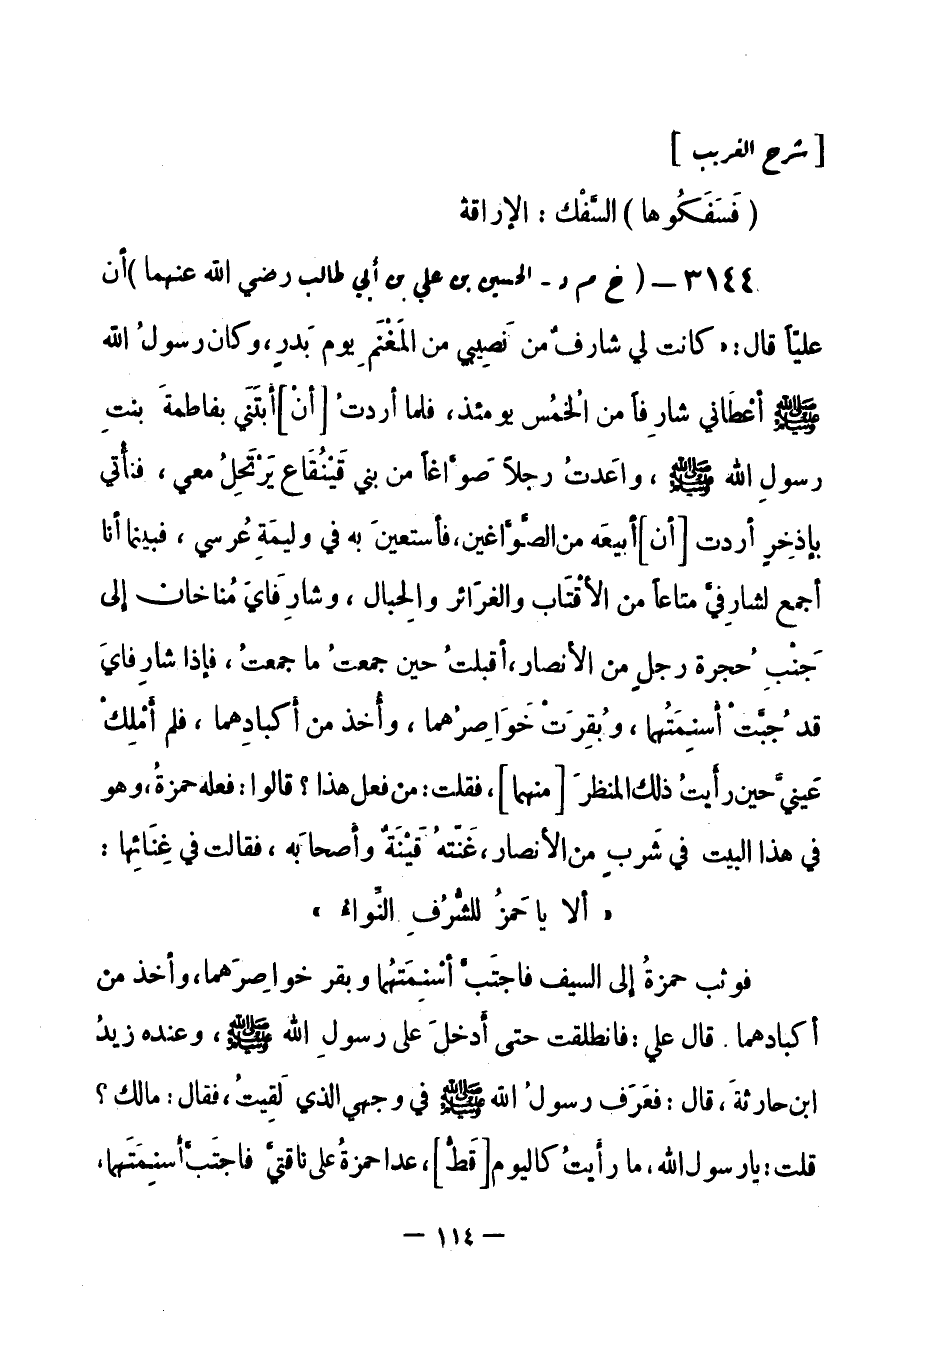 [ شرح الغريب ]
( فَسَفَكُوها ) السَّفْك : الإراقة
٣١٤٤ – ( خ م د - الحسين بن علي بن أبي طالب رضي الله عنهما ) أن
عليّاً قال : « كانت لي شارفٌ من نَصِيبي من المَغْنَمِ يوم بَدرٍ ، وكان رسولُ الله
ﷺ أعْطَاني شارِفاً من الخُمْس يومئذ ، فلما أردتُ [ أنْ ] أبْتَنَي بفاطمةَ بنتِ
رسولِ الله ﷺ ، واعَدتُ رجلاً صَوَّاغاً من بني قَيْنُقَاع يَرْتَحِلُ معي ، فنأتي
بإذخِرٍ أردت [ أن ] أبيعَه من الصَّوَّاغين ، فأستعينَ به في وليمَةِ عُرسي ، فبينما أنا
أجمع لشارِفيَّ متاعاً من الأقْتَاب والغرَائر والحِبال ، وشارِفَايَ مُناخان إلى
جَنْبِ حُجرة رجلٍ من الأنصار ، أقبلتُ حين جمعتُ ما جمعتُ ، فإذا شارِفايَ
قد جُبَّتْ أسنِمَتُهما ، وبُقِرَتْ خَوَاصِرُهما ، وأُخذ من أكبادِهما ، فلم أَمْلِكْ
عَينيَّ حين رأيتُ ذلك المنظرَ [ منهما ] ، فقلت : من فعل هذا ؟ قالوا : فعله حمزةُ ، وهو
في هذا البيت في شَربٍ من الأنصار ، غَنَّتهُ قَيْنَةٌ وأصحابَه ، فقالت في غِنَائها :
« ألا يا حَمزُ للشُّرُفِ النِّواءِ »
فوثب حمزةُ إلى السيف فاجتَبَّ أسْنِمَتَهُما وبقر خواصِرَهما ، وأخذ من
أكبادهما . قال علي : فانطلقت حتى أدخلَ على رسولِ الله ﷺ ، وعنده زيدُ
ابن حارثةَ ، قال : فعَرَف رسولُ الله ﷺ في وجهي الذي لَقِيتُ ، فقال : مالك ؟
قلت : يارسول الله ، ما رأيتُ كاليوم [ قَطُّ ] ، عدا حمزةُ على ناقتيَّ فاجتَبَّ أسنِمَتَهما ،
– ١١٤ –